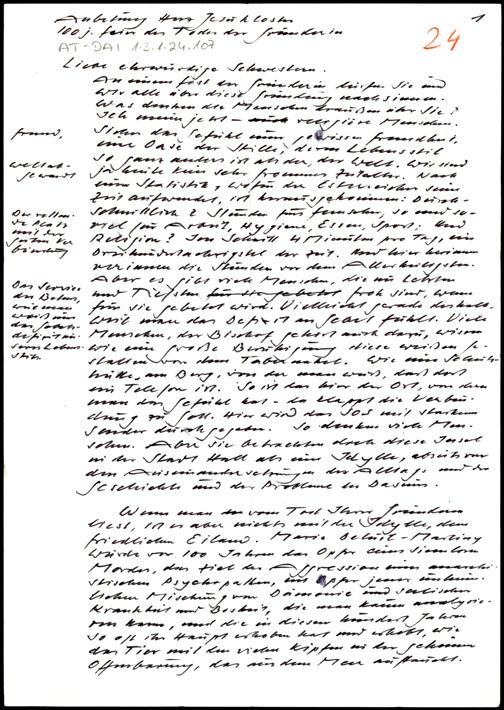 Anbetung Herz Jesukloster
100 j. feier des Todes der Gründerin
AT-DAI 1.3.1.24.107
24
1
Liebe ehrwürdige Schwestern.
An einem Fest der Gründerin dürfen Sie und
wir alle über diese Gründung nachsinnen.
Was denken die Menschen draußen über Sie?
Ich meine jetzt – auch religiöse Menschen.
fremd,
Sicher das Gefühl einer gewissen Fremdheit,
eine Oase der Stille, deren Lebensstil
weltab-
gewandt
so ganz anders ist als der, der Welt. Wir sind
ja heute kein sehr frommes Zeitalter. Nach
einer Statistik, wofür die Österreicher seine
Zeit aufwendet, ist herausgekommen: Durch-
schnittlich 2 Stunden fürs fernsehen, so und so-
viel für Arbeit, Hygiene, Essen, Sport; Und
Religion? Im Schnitt 4 Minuten pro Tag, ein
Dreihundertachtzigstel der Zeit. Und hier herinnen
verrinnen die Stunden vor dem Allerheiligsten.
Aber es gibt viele Menschen, die im Letzten
Der
mit der
Das Service
des Betens,
und Tiefsten für sie gebetet froh sind, wenn
für sie gebetet wird. Vielleicht gerade deshalb,
weil man das Defizit an Gebet fühlt. Viele
Menschen, der Bischof gehört auch dazu, wissen
wie eine große Beruhigung diese weißen Ge-
stalten vor dem Tabernakel. Wie eine Schutz-
hütte, am Berg, von der man weiß, daß dort
ein Telefon ist. So ist das hier der Ort, von dem
man das Gefühl hat – da klappt die Verbin-
dung zu Gott. Hier wird das SOS mit starkem
Sender durchgegeben. So denken viele Men-
schen. Aber sie betrachten doch diese Insel
in der Stadt Hall als eine Idylle, abseits von
den Auseinandersetzungen des Alltags und der
Geschichte und der Probleme des Daseins.
Wenn man den vom Tod Ihrer Gründerin
liest, ist es aber nichts mit der Idylle, dem
friedlichen Eiland. Marie Deluil-Martiny
wurde vor 100 Jahren das Opfer eines sinnlosen
Mordes, das Ziel der Aggression eines anarchi-
stischen Psychopathen, ein Opfer jener unheim-
lichen Mischung von Dämonie und seelischer
Krankheit und Bosheit, die man kaum analysie-
ren kann, und die in diesen hundert Jahren
so oft ihr Haupt erhoben hat und erhebt, wie
das Tier mit den vielen Köpfen in der geheimen
Offenbarung, das aus dem Meer auftaucht.